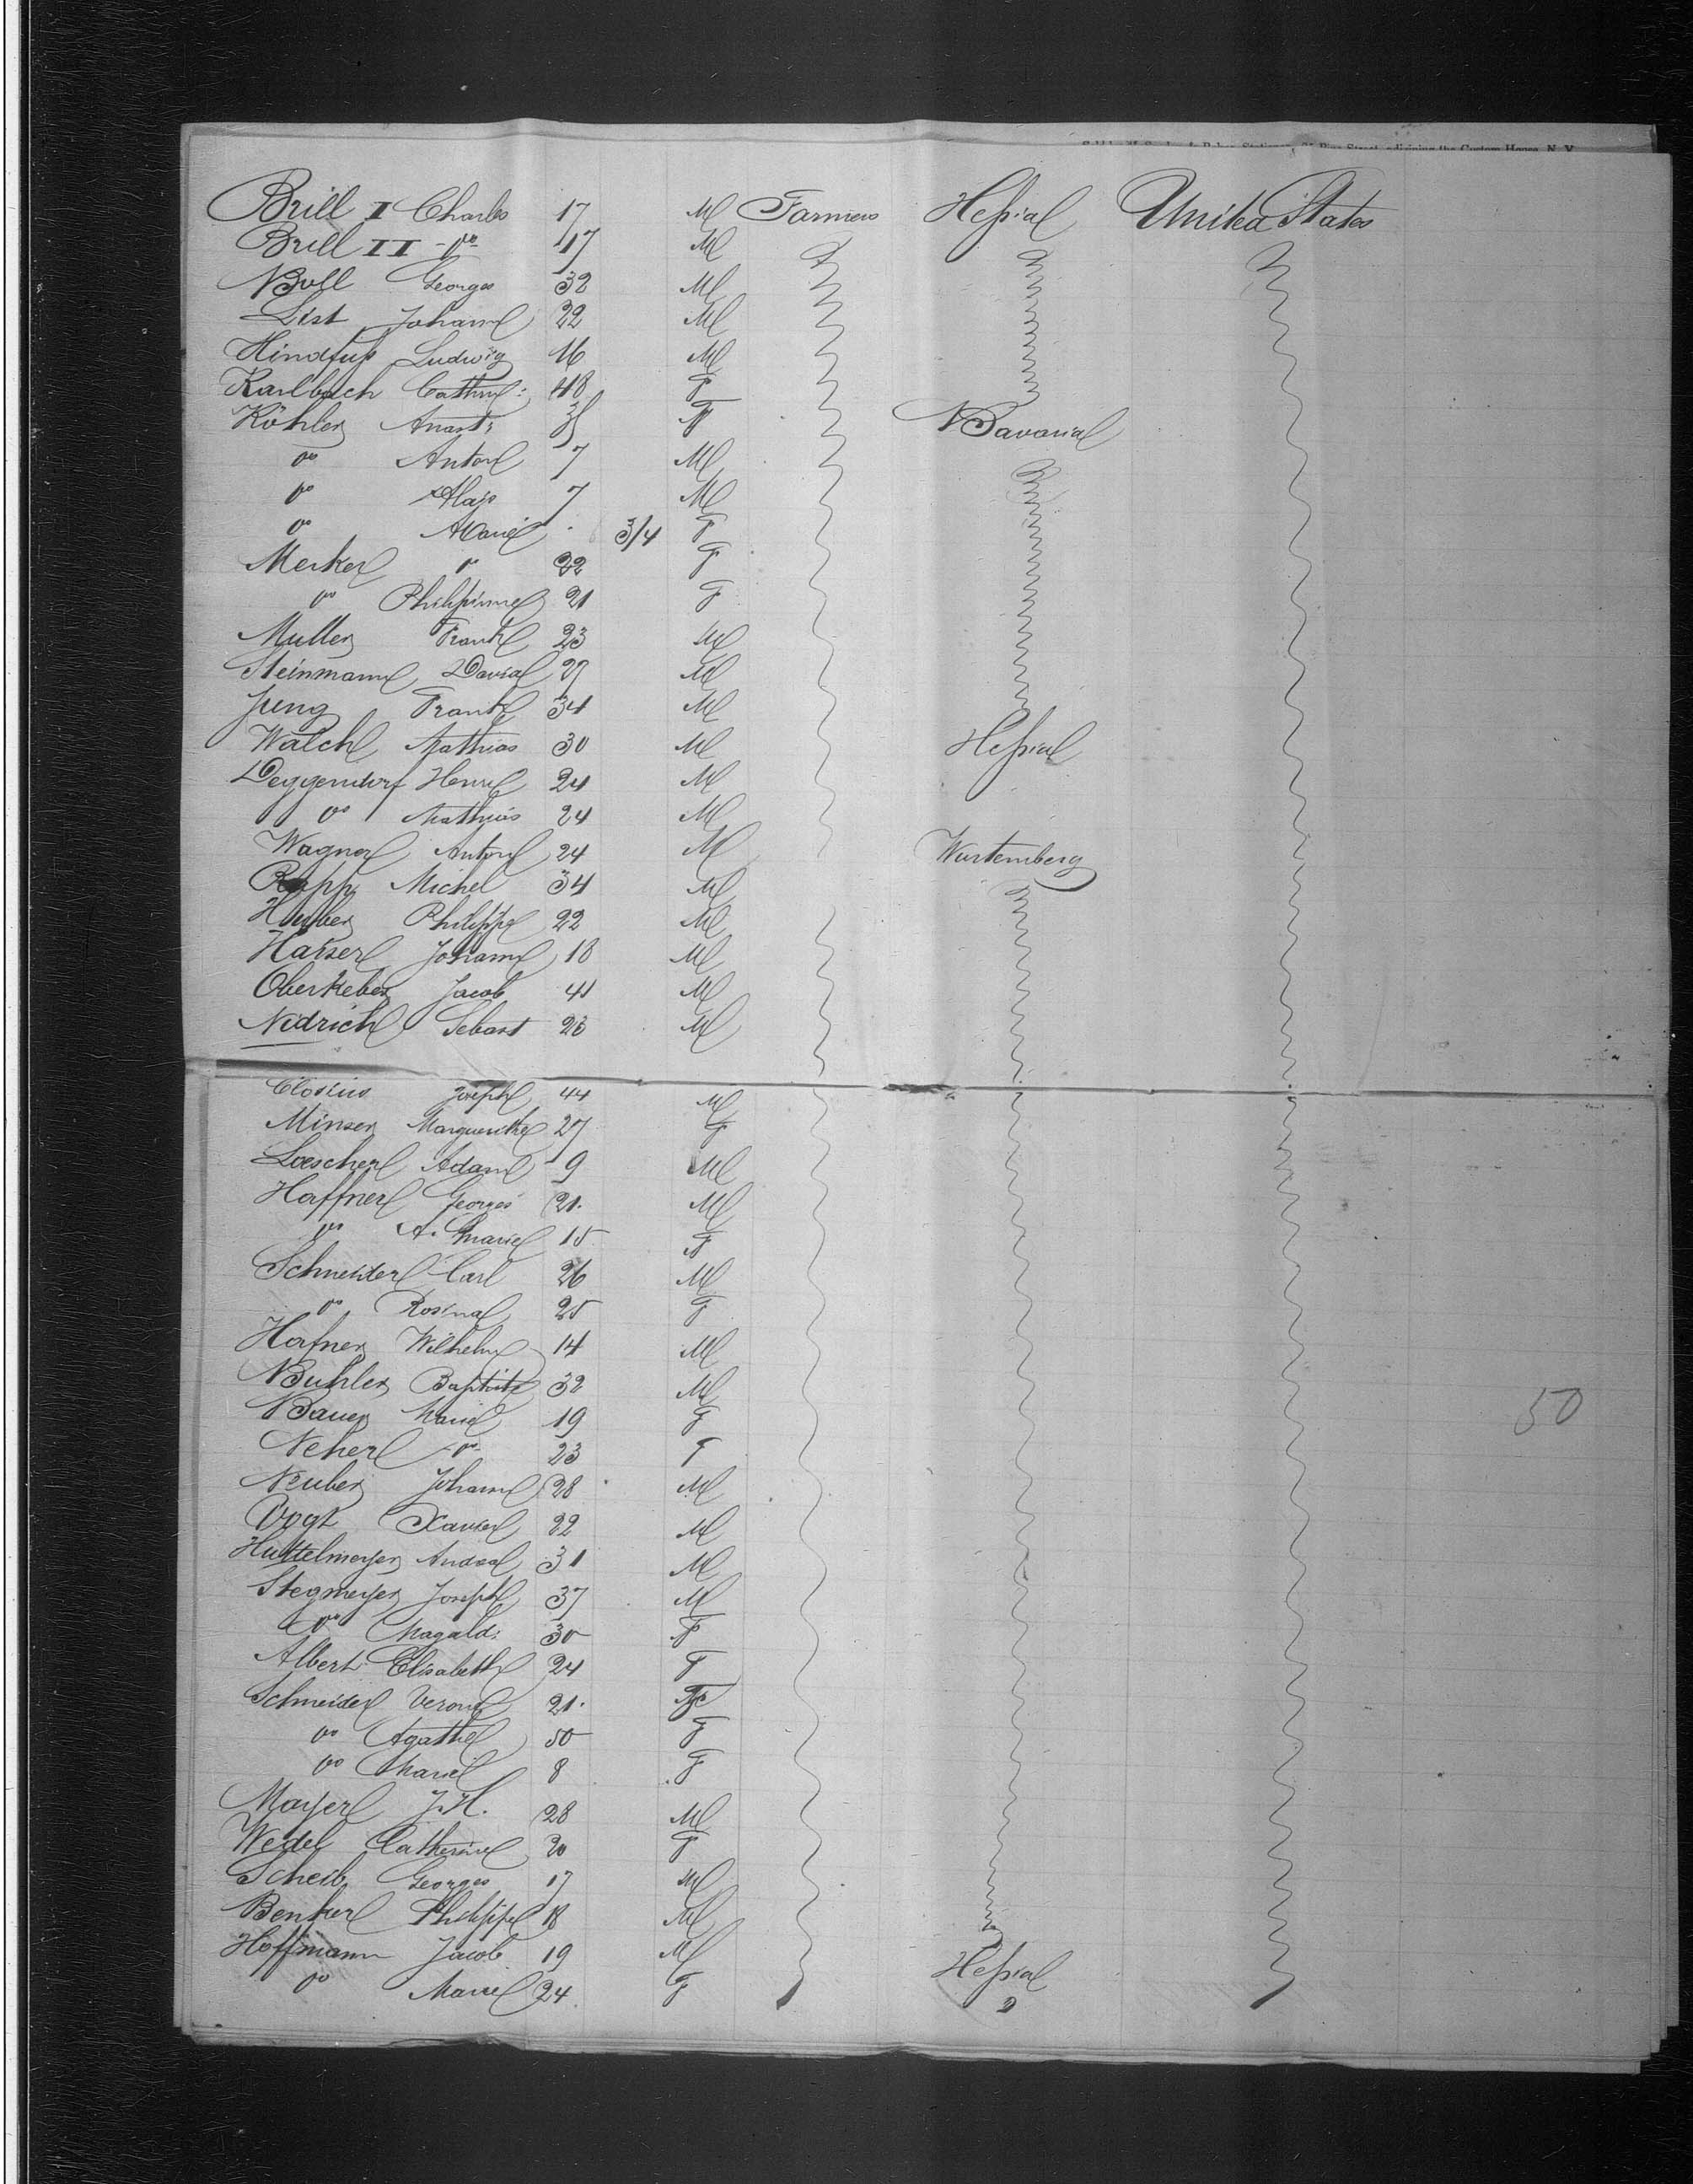 Brill I Charles 17 M Farmers Hessia United States
Brill II - do - 17 M
Boll Georges 32 M
List Johann 22 M
Ludwig 16 M
Karlbach Cathrin: 48 F
Köhler Anast: F Bavaria
do Anton 7 M
do 7 M
do Marie 3/4 F
Merkel do 22 F
do Philippine 21 F
Muller Frank 23 M
Steinmann David 27 M
Jung Frank 34 M
Walch Mathias 30 M Hessia
Deggendorf Henri 24 M
do Mathias 24 M
Wagner Anton 24 M Wurtemberg
Rupp Michel 34 M
Huber Philippe 22 M
Haiser Johann 18 M
Oberkeber Jacob 41 M
Nidrich Sebast 23 M
Closius Joseph 44 M
Minser Marguerithe 27 F
Loescher Adam 9 M
Haffner Georges 21. M
do A. Marie 15 F
Schneider Carl 26 M
do Rosina 25 F
Hafner Wilhelm 14 M
Buhler Baptiste 32 M
Bauer Marie 19 F
Neher - do - 23 F
Neuber Johann 28 M
Vogt Xavier 22 M
Huttelmeyer Andrea 31 M
Stegmeyer Joseph 37 M
do Magald: 30 F
Albert Elisabeth 24 F
Schneider Veron 21. F
do Agathe 50 F
do Marie 8 F
Mayer J. H. 28 M
Wedel Catherine 20 F
Scheib Georges 17 M
Philippe 18 M
Hoffmann Jacob 19 M Hessia
do Marie 24 F
50